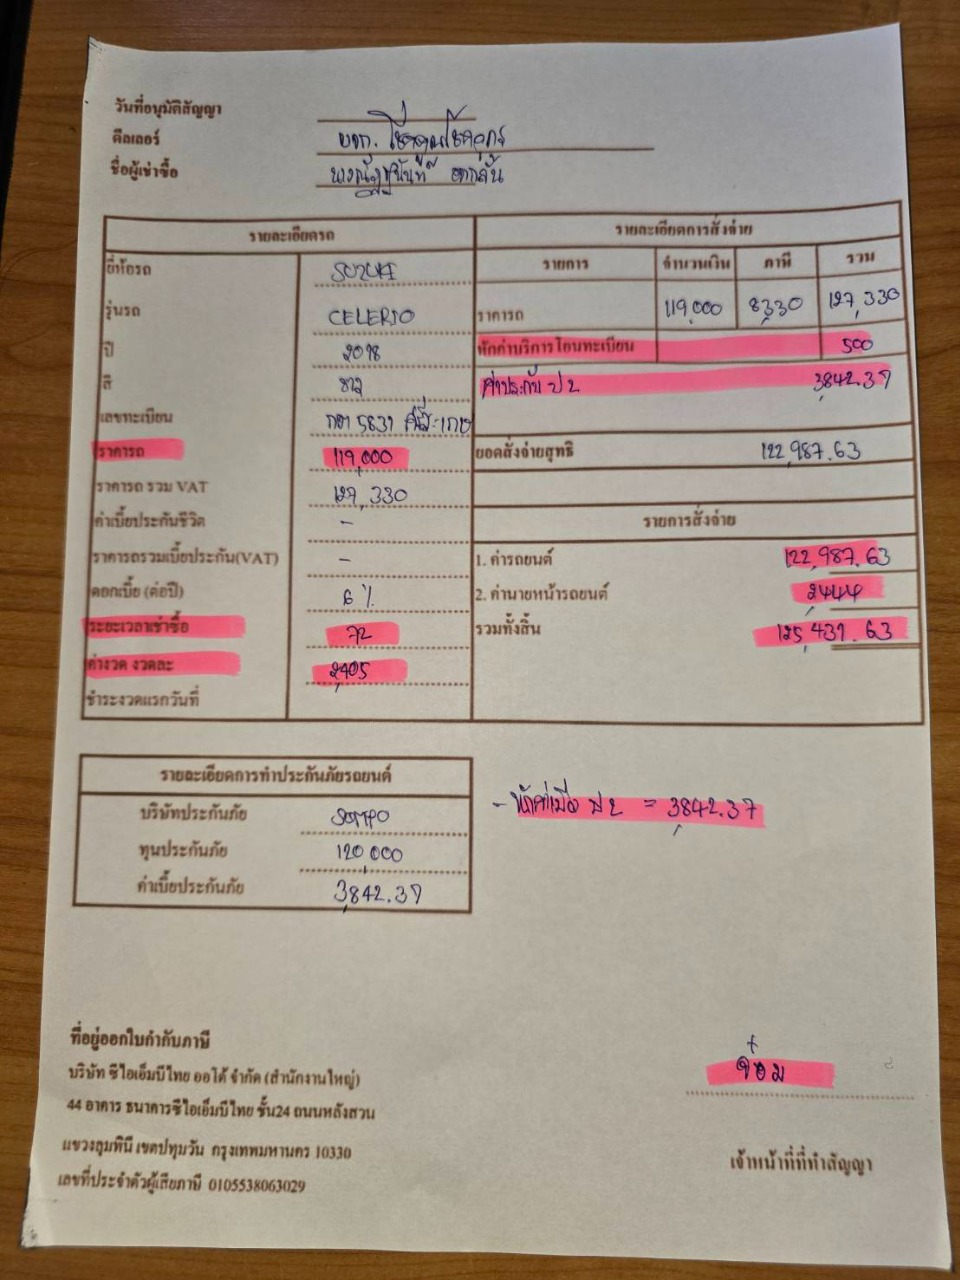 วันที่อนุมัติสัญญา
ดีลเลอร์ บจก.
ชื่อผู้เช่าซื้อ
รายละเอียดรถ
ยี่ห้อรถ SUZUKI
รุ่นรถ CELERIO
ปี 2018
สี ขาว
เลขทะเบียน 5831 ศรีสะเกษ
ราคารถ 119,000
ราคารถ รวม VAT 127,330
ค่าเบี้ยประกันชีวิต -
ราคารถรวมเบี้ยประกัน(VAT) -
ดอกเบี้ย (ต่อปี) 6 %
ระยะเวลาเช่าซื้อ 72
ค่างวด งวดละ 2,405
ชำระงวดแรกวันที่
รายละเอียดการสั่งจ่าย
รายการ จำนวนเงิน ภาษี รวม
ราคารถ 119,000 8,330 127,330
หักค่าบริการโอนทะเบียน 500
ค่าประกัน ป 2 3,842.37
ยอดสั่งจ่ายสุทธิ 122,987.63
รายการสั่งจ่าย
1. ค่ารถยนต์ 122,987.63
2. ค่านายหน้ารถยนต์ 2,444
รวมทั้งสิ้น 125,431.63
รายละเอียดการทำประกันภัยรถยนต์
บริษัทประกันภัย SOMPO
ทุนประกันภัย 120,000
ค่าเบี้ยประกันภัย 3,842.37
- หักค่าเบี้ย ป 2 = 3,842.37
ที่อยู่ออกใบกำกับภาษี
บริษัท ซีไอเอ็มบีไทย ออโต้ จำกัด (สำนักงานใหญ่)
44 อาคาร ธนาคารซีไอเอ็มบีไทย ชั้น24 ถนนหลังสวน
แขวงลุมพินี เขตปทุมวัน กรุงเทพมหานคร 10330
เลขที่ประจำตัวผู้เสียภาษี 0105538063029
จ๋อม
เจ้าหน้าที่ที่ทำสัญญา